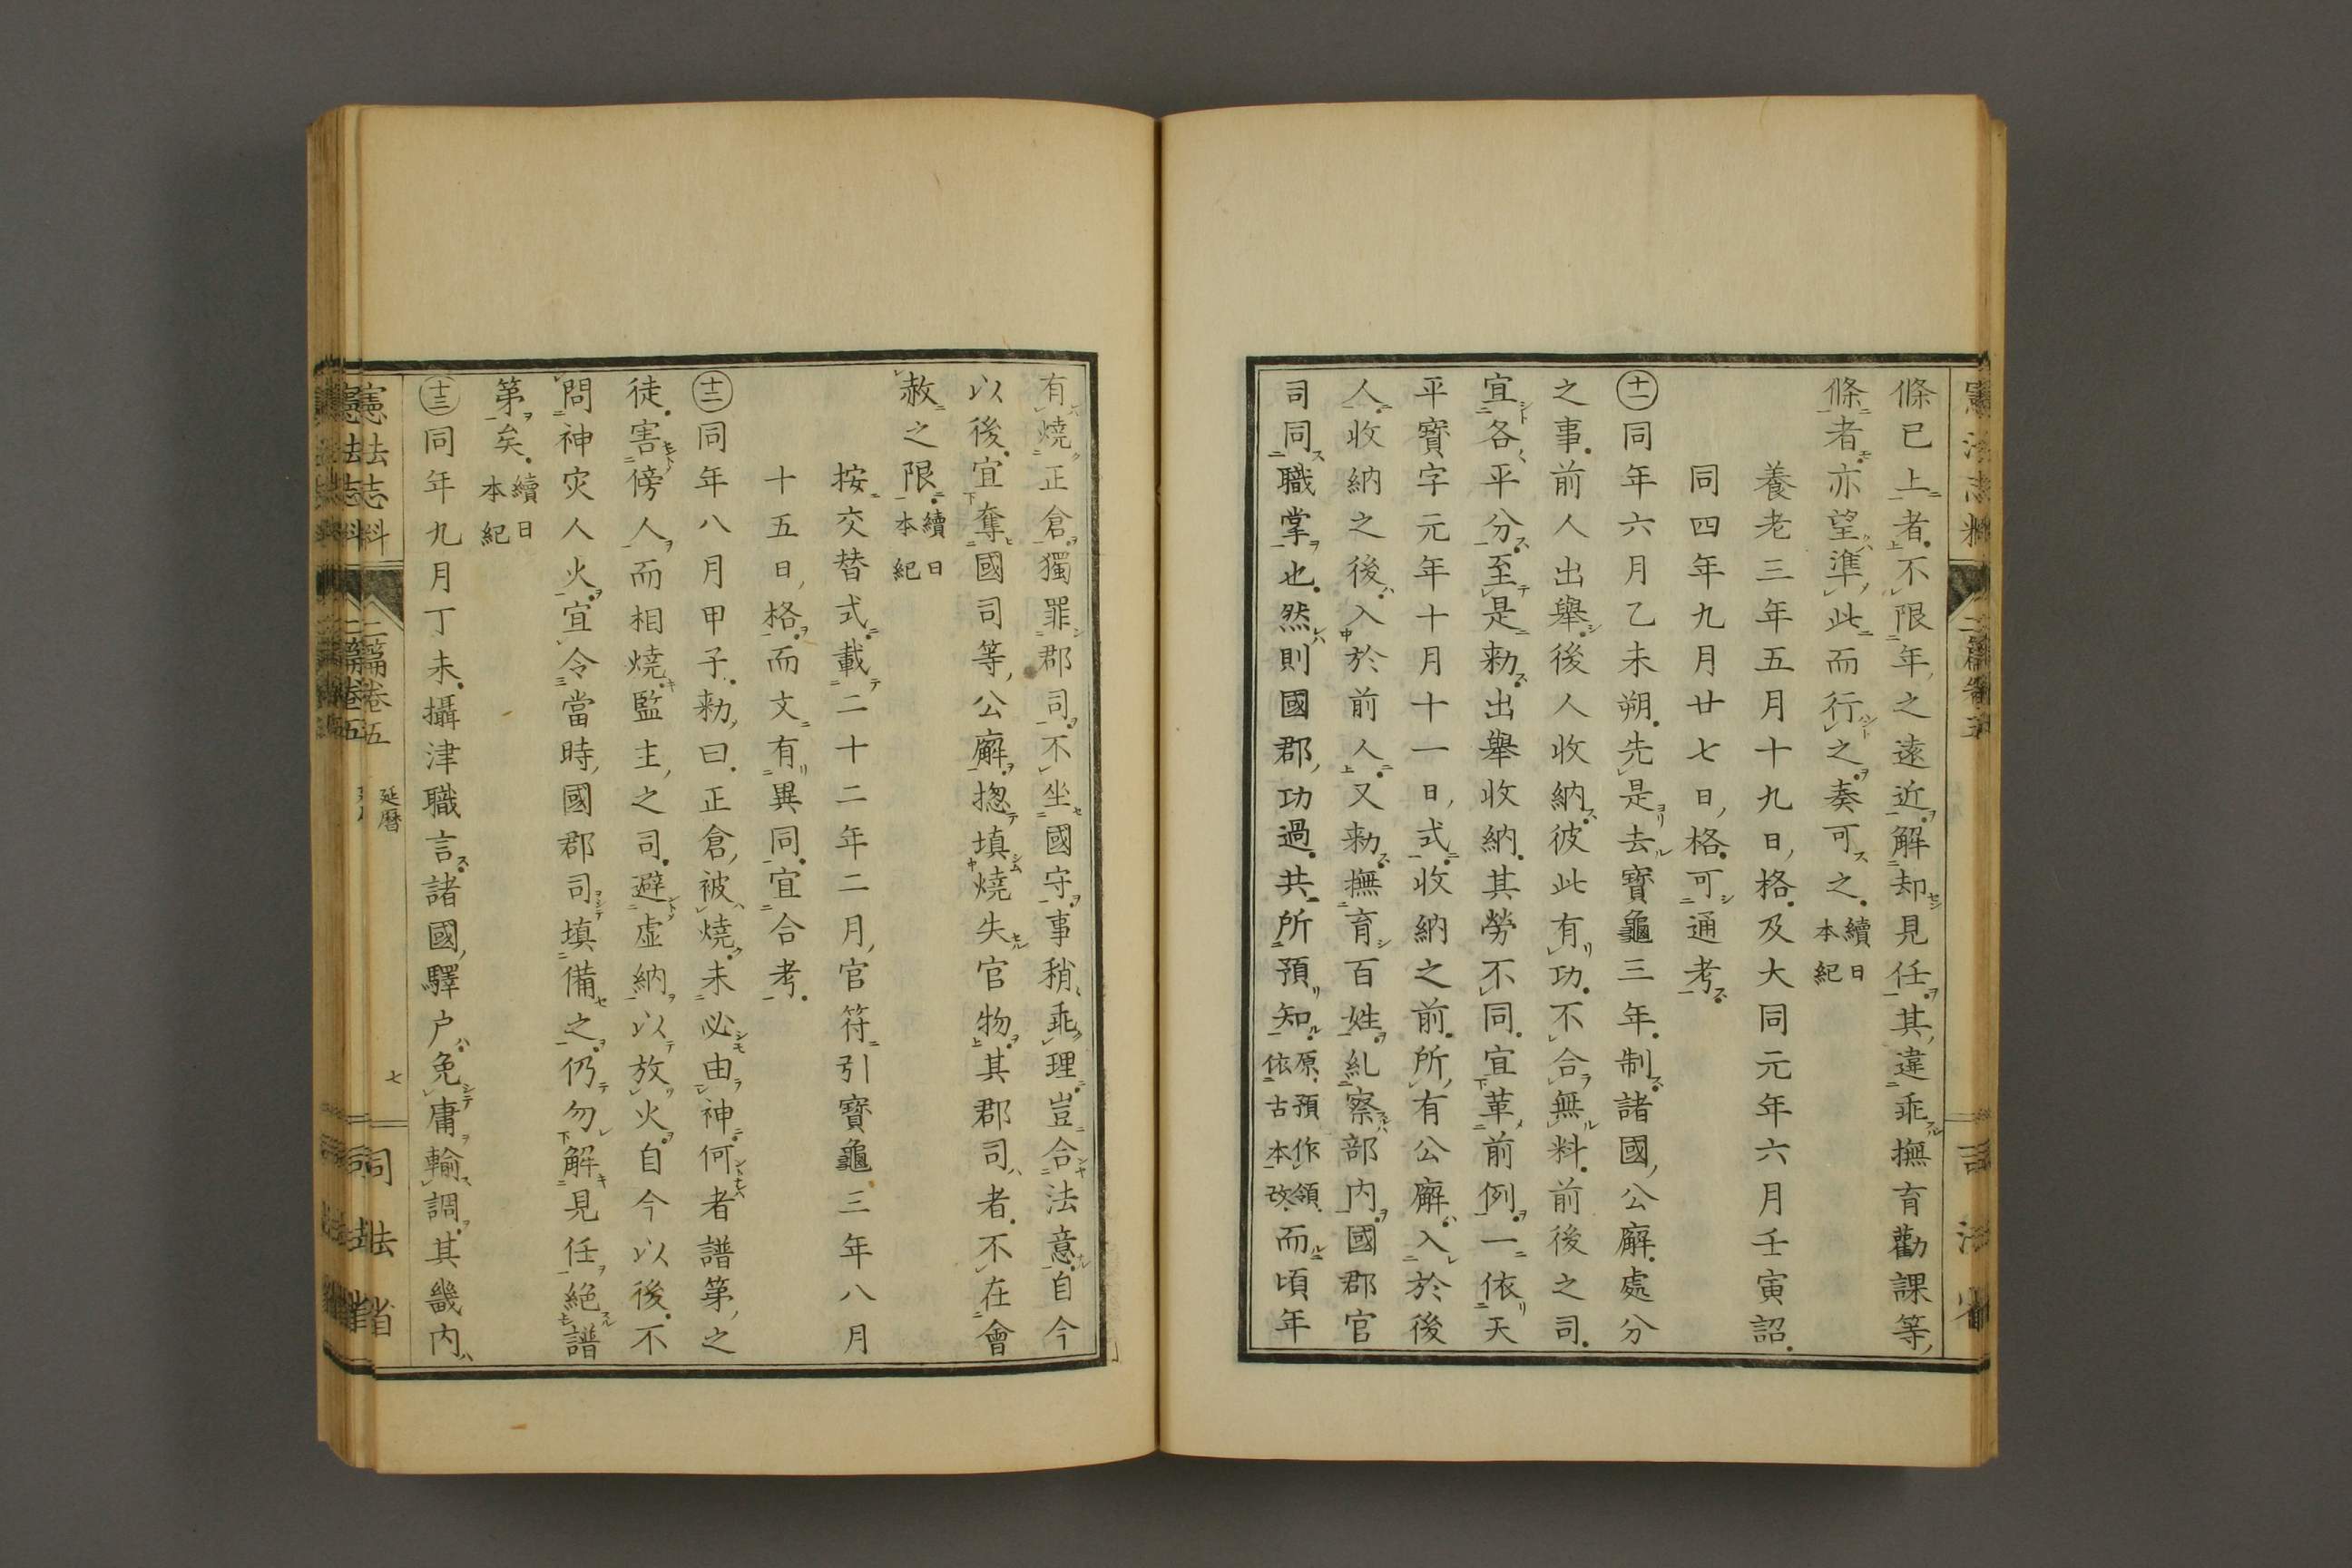 憲法志料 二篇卷五 司法省
條已上者不限年之遠近解却見任其違乖撫育勸課等
條者亦望準此而行之奏可之續日本紀
養老三年五月十九日格及大同元年六月壬寅詔
同四年九月廿七日格可通考
十一同年六月乙未朔先是去寶龜三年制諸國公廨處分
之事前人出舉後人收納彼此有功不合無料前後之司
宜各平分至是勅出舉收納其勞不同宜革前例一依天
平寶字元年十月十一日式收納之前所有公廨入於後
人收納之後入於前人又勅撫育百姓糺察部內國郡官
司同職掌也然則國郡功過共所預知原預作領依古本改而頃年
有燒正倉獨罪郡司不坐國守事稍乖理豈合法意自今
以後宜奪國司等公廨揔填燒失官物其郡司者不在會
赦之限續日本紀
按交替式載二十二年二月官符引寶龜三年八月
十五日格而文有異同宜合考
十二同年八月甲子勅曰正倉被燒未必由神何者譜第之
徒害傍人而相燒監主之司避虛納以放火自今以後不
問神灾人火宜令當時國郡司填備之仍勿解見任絕譜
第矣續日本紀
十三同年九月丁未攝津職言諸國驛户免庸輸調其畿內
憲法志料 二篇卷五 延曆 七 司法省